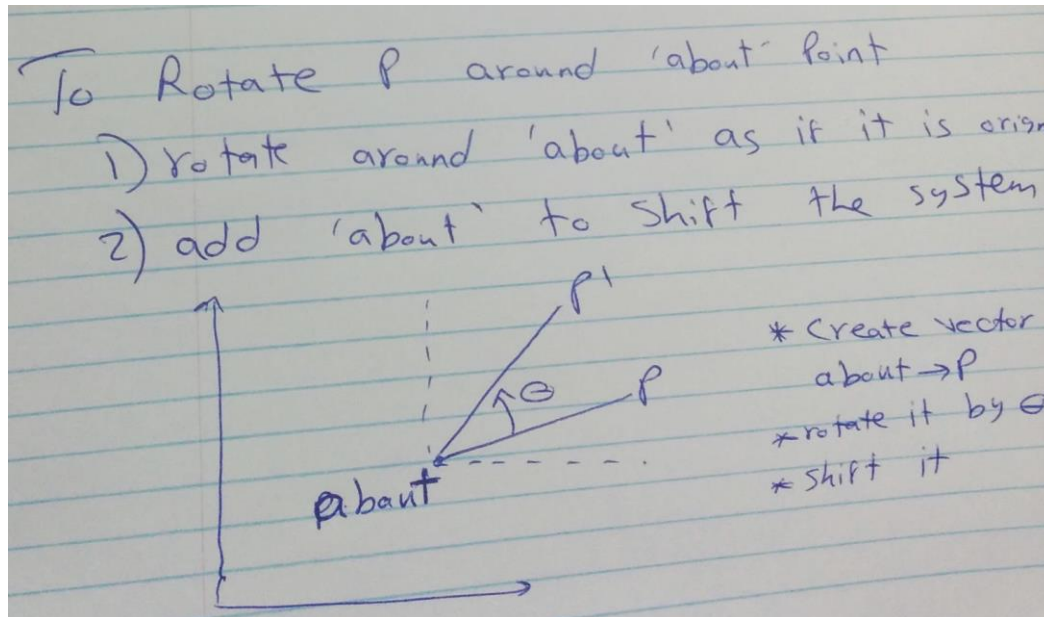 To Rotate P around 'about' Point
1) rotate around 'about' as if it is orign
2) add 'about' to shift the system
P'
* Create vector
about → P
θ
P
* rotate it by θ
* shift it
about